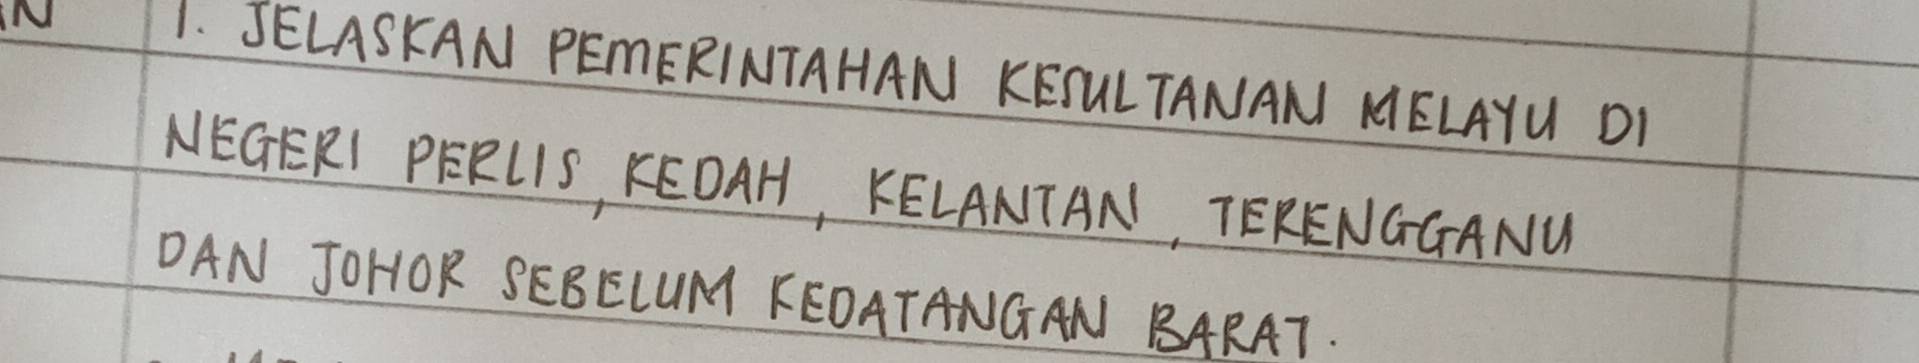 1. JELASKAN PEMERINTAHAN KESULTANAN MELAYU DI
NEGERI PERLIS, KEDAH, KELANTAN, TERENGGANU
DAN JOHOR SEBELUM KEDATANGAN BARAT.